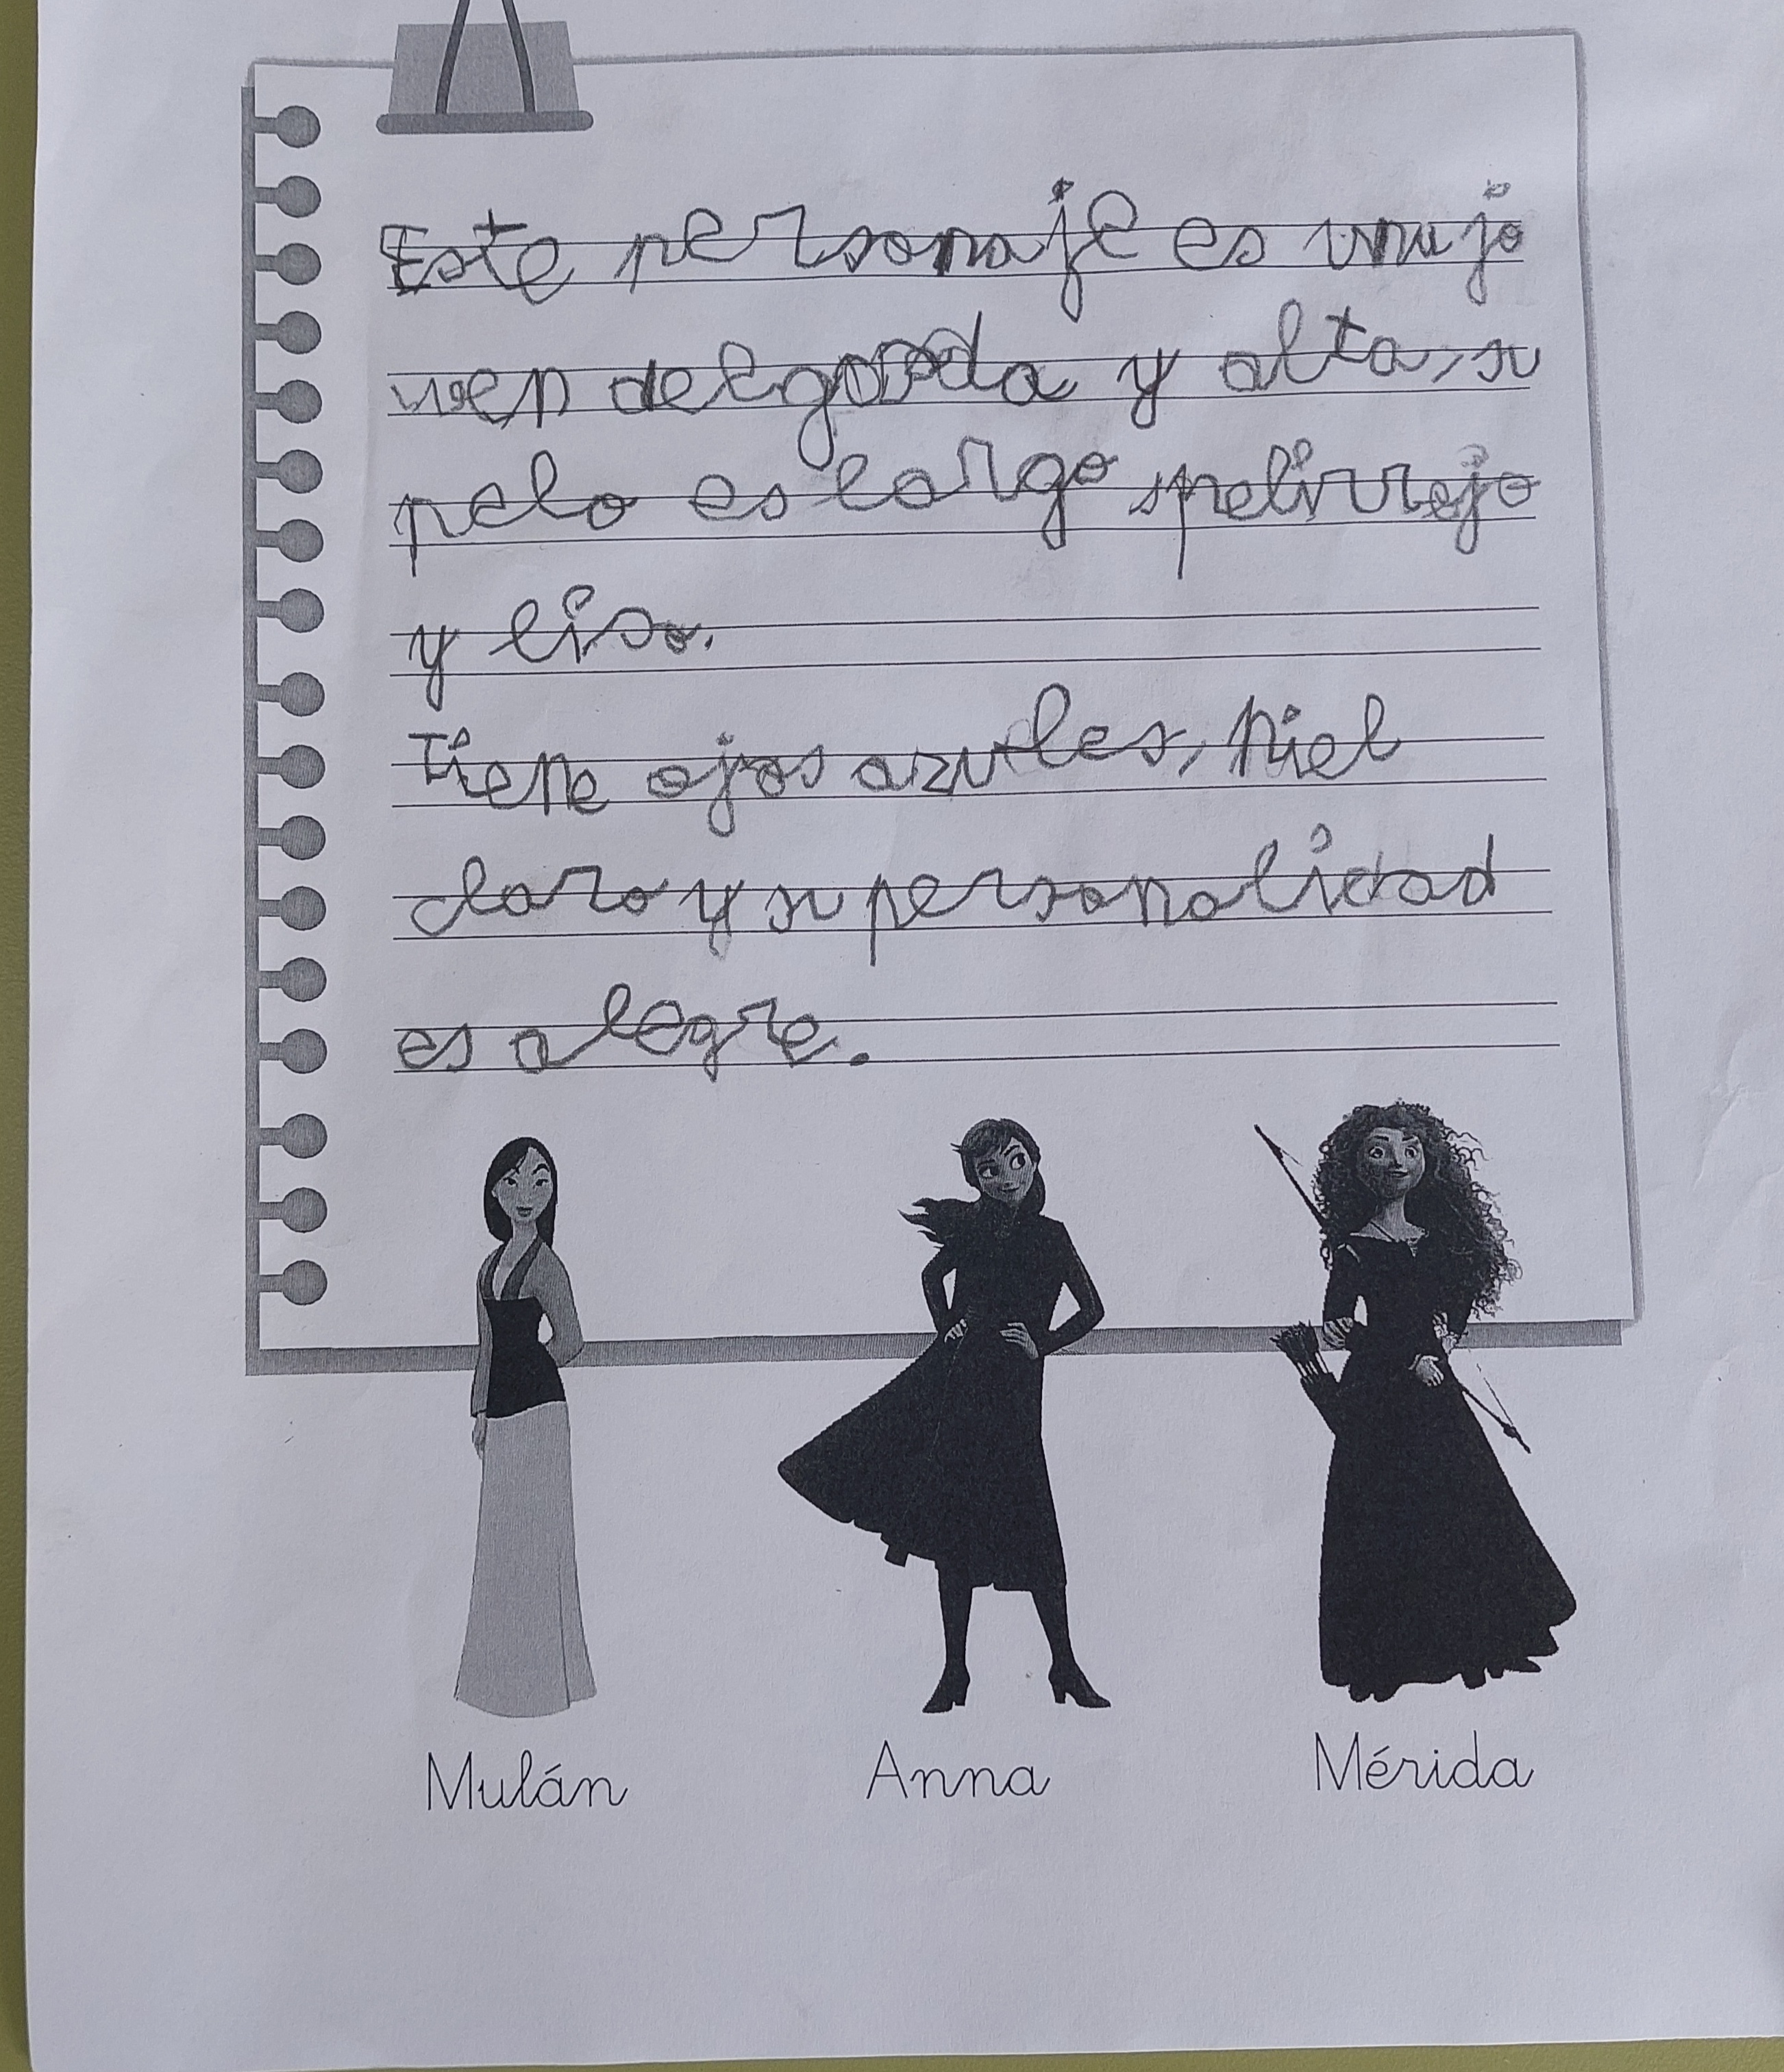 Este personaje es mu jo
ven delgada y alta, su
pelo es largo, pelirrejo
y liso.
Tiene ojos azules, piel
claro y su personalidad
es alegre.
Mulán Anna Mérida